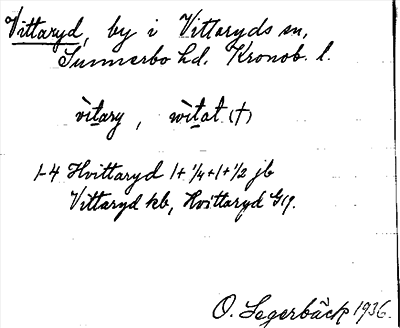 Vittaryd, by i Vittaryds sn,
Sunnerbo hd. Kronob. l.
vìtary, wìtat (†)
1-4 Hvittaryd 1+¼+1+½ jb
Vittaryd kb, Hvittaryd G19.
O. Segerbäck 1936.